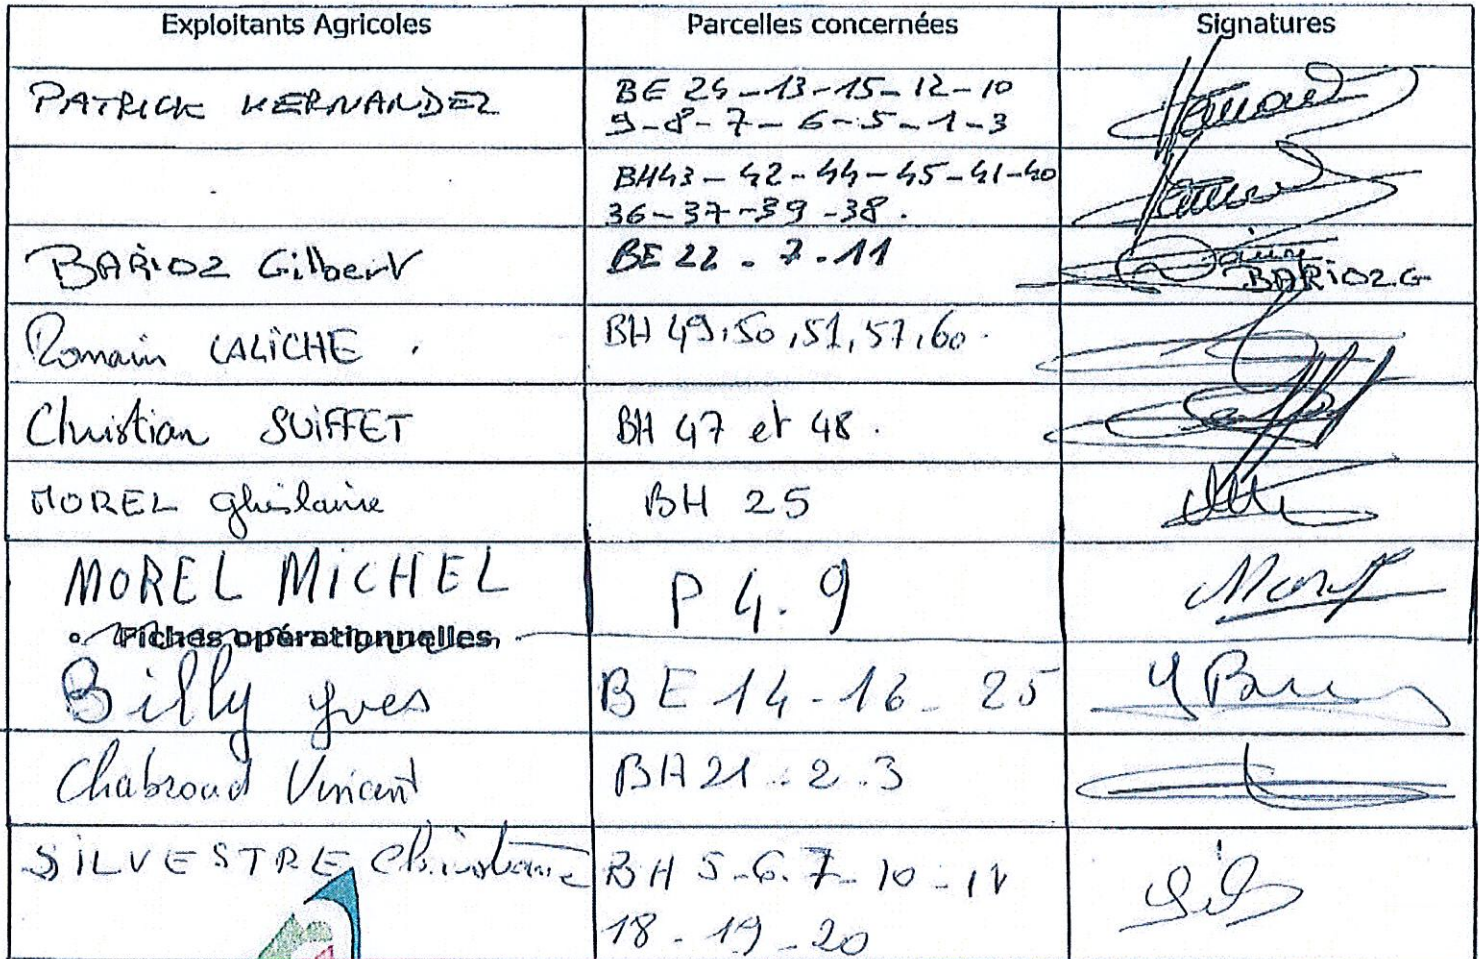 Exploitants Agricoles Parcelles concernées Signatures
PATRICK HERNANDEZ BE 24-13-15-12-10
9-8-7-6-5-1-3
BH43-42-44-45-41-40
36-37-39-38.
BARIOZ Gilbert BE 22 . 7 . 11
BARIOZ G
Romain LALICHE . BH 49,50,51,57,60.
Christian SUIFFET BH 47 et 48.
MOREL Ghislaine BH 25
MOREL MICHEL P 4.9 Morel
• Fiches opérationnelles
Billy Yves BE 14-16-25
Chabroud Vincent BA21-2-3
SILVESTRE Christiane BH 5-6.7-10-11
18-19-20